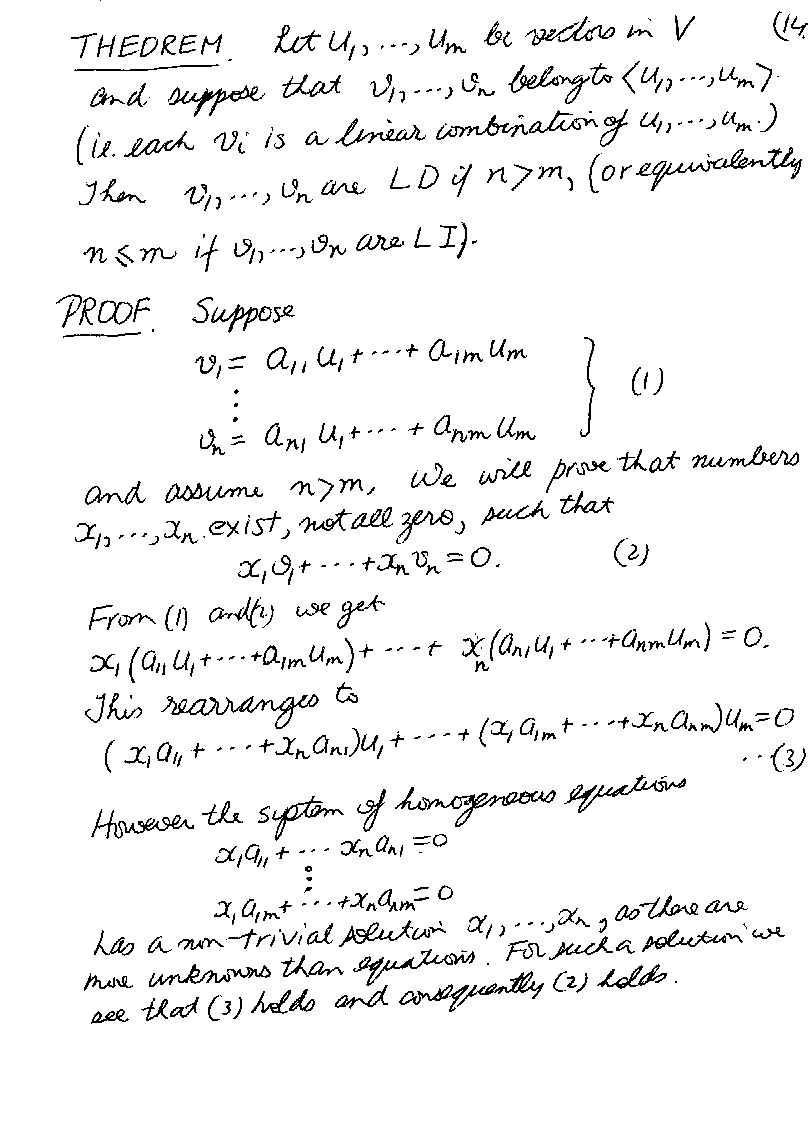 THEOREM. Let u₁, ..., uₘ be vectors in V (14
and suppose that v₁, ..., vₙ belong to ⟨u₁, ..., uₘ⟩
(ie. each vᵢ is a linear combination of u₁, ..., uₘ.)
Then v₁, ..., vₙ are LD if n>m, (or equivalently
n ⩽ m if v₁, ..., vₙ are LI).
PROOF. Suppose
v₁ = a₁₁u₁ + ··· + a₁ₘuₘ
⋮ } (1)
vₙ = aₙ₁u₁ + ··· + aₙₘuₘ
and assume n>m, We will prove that numbers
x₁, ..., xₙ exist, not all zero, such that
x₁v₁ + ··· + xₙvₙ = 0. (2)
From (1) and (2) we get
x₁(a₁₁u₁ + ··· + a₁ₘuₘ) + ··· + xₙ(aₙ₁u₁ + ··· + aₙₘuₘ) = 0.
This rearranges to
(x₁a₁₁ + ··· + xₙaₙ₁)u₁ + ··· + (x₁a₁ₘ + ··· + xₙaₙₘ)uₘ = 0
··(3)
However the system of homogeneous equations
x₁a₁₁ + ··· xₙaₙ₁ = 0
⋮
x₁a₁ₘ + ··· + xₙaₙₘ = 0
has a non-trivial solution x₁, ..., xₙ, as there are
more unknowns than equations. For such a solution we
see that (3) holds and consequently (2) holds.